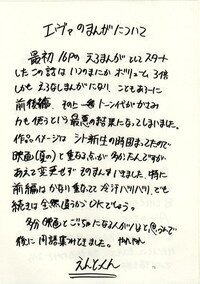 エヴァのまんがについて
最初16Pの えろまんがとしてスタート
したこの話は いつのまにか ボリューム3倍
しかも えろなしまんがになり、こともあろーに
前後編、その上 トーン代がかさみ
力も使うという最悪の結果になってしまいました。
作品イメージは シト新生の時固まってたので
映画(夏の)と重なる点が多かたんですが
あえて変更せず そのままいきました。特に
前編はかなり重なってて 冷汗バリバリ。でも
続きは全然違うから OKでしょう。
多分映画とごっちゃになる人がいると思うんで
後に用語集みたいのつけときました。
えんどっくん